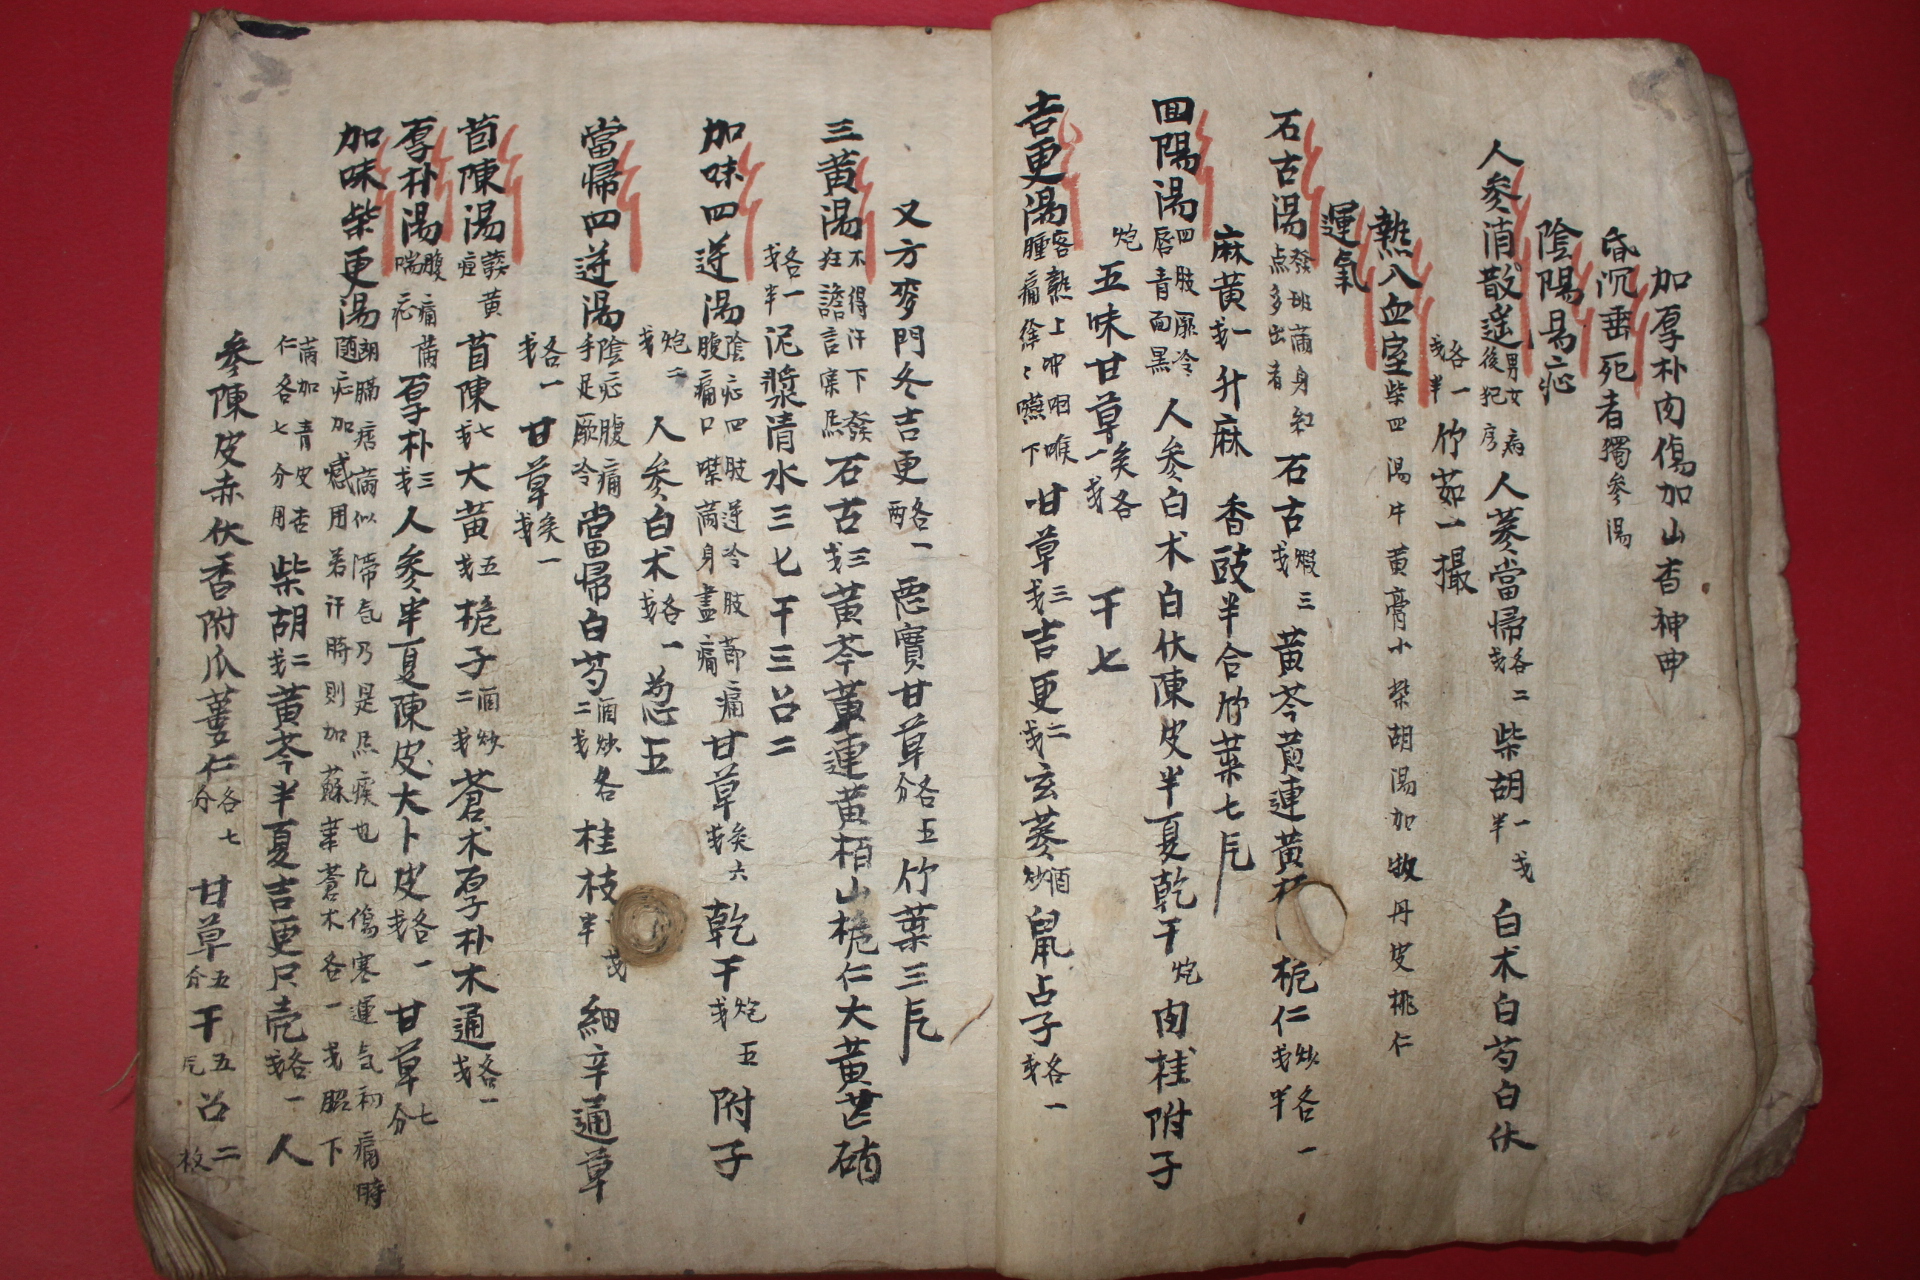 加厚朴肉傷加山查神曲
昏沉垂死者獨參湯
陰陽易症
人參消散遙男女病後犯房人蔘當歸各二戔柴胡一戔半白朮白芍白伏
各一戔半竹茹一撮
熱入血室柴四湯牛黃膏小柴胡湯加牧丹皮桃仁
運氣
石古湯發班滿身紅点多出者石古煆三戔黃芩黃連黃栀仁炒各一戔半
麻黃一戔升麻香豉半合竹葉七片
回陽湯四肢厥冷唇青面黑人參白朮白伏陳皮半夏乾干炮肉桂附子
炮五味甘草灸各一戔干七
吉更湯客熱上冲咽喉腫痛徐〻嚥下甘草三戔吉更二戔玄蔘酒炒鼠占子各一戔
又方麥門冬吉更各一兩惡實甘草各五分竹葉三片
三黃湯不得汗下發狂譫言寒热石古三戔黃芩黃連黃栢山栀仁大黃芒硝
各一戔半泥漿清水三七干三召二
加味四逆湯陰症四肢逆冷肢節痛腹痛口噤滿身盡痛甘草灸六戔乾干炮五戔附子
炮二戔人參白朮各一戔葱五
當歸四逆湯陰症腹痛手足厥冷當歸白芍酒炒各二戔桂枝半戔細辛通草
各一戔甘草灸一戔
茵陳湯誤黃疸茵陳七戔大黃五戔栀子酒炒二戔蒼朮厚朴木通各一戔
厚朴湯腹痛滿喘症厚朴三戔人參半夏陳皮大卜皮各一戔甘草七分
加味柴更湯胡膈痞滿似滯气乃是热痰也凡傷寒運气初痛時随症加减用若汗時則加蘇葉蒼朮各一戔昭下
滿加青皮杏仁各七分用柴胡二戔黃芩半夏吉更只壳各一戔人
參陳皮赤伏香附瓜蔞仁各七分甘草五分干五片召二枚